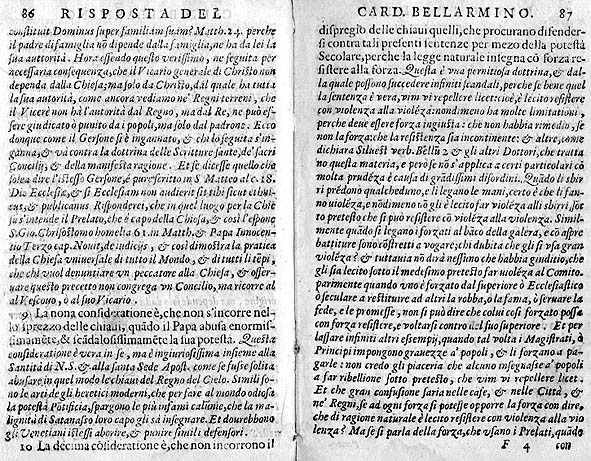 86 RISPOSTA DEL
constituit Dominus super familiam suam? Matth. 24. perche
il padre di famiglia nō dipende dalla famiglia, ne ha da lei la
sua auttorità. Hora essendo questo verissimo, ne seguita per
necessaria consequenza, che il Vicario generale di Christo non
dependa dalla Chiesa; ma solo da Christo, dal quale hà tutta
la sua autorità, come ancora vediamo ne' Regni terreni, che
il Vicerè non hà l'autorità dal Regno, ma dal Re, ne può es-
sere giudicato ò punito da i popoli, ma solo dal padrone. Ecco
dunque come il Gersone s'è ingannato, & chi lo seguita s'in-
ganna; & và contra la dottrina delle Scritture sante, de' sacri
Concilij, & della manifesta ragione. Et se dicesse quello che
solea dire l'istesso Gersone, è pure scritto in S. Matteo al c. 18.
Dic Ecclesiæ, & si Ecclesiam non audierit sit tibi sicut ethni-
cus, & publicanus Risponderei, che in quel luogo per la Chie
sa s'intende il Prelato, che è capo della Chiesa, & così l'espone
S. Gio. Chrisostomo homelia 61. in Matth. & Papa Innocen-
tio Terzo cap. Nouit, de iudicijs, & così dimostra la pratica
della Chiesa vniuersale di tutto il Mondo, & di tutti li tēpi,
che chi vuol denuntiare vn peccatore alla Chiesa, & osser-
uare questo precetto non congrega vn Concilio, ma ricorre al
al Vescouo, ò al suo Vicario.
9 La nona consideratione è, che non s'incorre nel-
lo sprezzo delle chiaui, quādo il Papa abusa enormis-
simamēte, & scādalosissimamēte la sua potestà. Questa
consideratione è vera in se, ma è ingiuriosissima insieme alla
Santità di N.S. & alla santa Sede Apost. come se fusse solita
abusare, in quel modo le chiaui del Regno del Cielo. Simili so-
no le arti degli heretici moderni, che per far al mondo odiosa
la potestà Pōtificia, spargono le più infami calūnie, che la ma-
lignità di Satanasso loro capo gli sà insegnare. Et dourebbono
gli Venetiani istessi aborire, & punire simili defensori.
10 La decima cōsideratione è, che non incorrono il
CARD. BELLARMINO. 87
dispregio delle chiaui quelli, che procurano difender-
si contra tali presenti sentenze per mezo della potestà
Secolare, perche la legge naturale insegna cō forza re-
sistere alla forza. Questa è vna pernitiosa dottrina, & dal-
la quale possono succedere infiniti scandali, perche se bene quel
la sentenza è vera, vim vi repellere licet: cioè, è lecito resistere
con violenza alla violenza: nondimeno hà molte limitationi,
perche deue essere forza ingiusta: che non habbia rimedio, se
non la forza: che la resistenza sia incontinente: & altre, come
dichiara Siluest. verb. Bellū 2. & gli altri Dottori, che tratta
no questa materia, e però se nō s'applica a certi particolari cō
molta prudēza è causa di grādissimi disordini. Quādo li sbir
ri prēdono qualcheduno, e li legano le mani, certo è che li fan-
no violēza, e nōdimeno nō gli è lecito far violēza alli sbirri, sot
to pretesto che si può resistere cō violēza alla violenza. Simil-
mente quādo si legano i forzati al bāco della galera, e cō aspre
battiture sono cōstretti a vogare; chi dubita che gli si vsa gran
violēza? & tuttauia nō dirà nessuno che habbia giuditio, che
gli sia lecito sotto il medesimo pretesto far violēza al Comito.
parimente quando vno è forzato dal superiore ò Ecclesiastico
ò seculare a restituire ad altri la robba, ò la fama, ò seruare la
fede, e le promesse, non si può dire che colui così forzato possa
con forza resistere, e voltarsi contro al suo superiore. Et per
lassare infiniti altri essempij, quando tal volta i Magistrati, ò
Principi impongono grauezze a' popoli, & li forzano a pa-
garle: non credo gli piaceria che alcuno insegnasse a' popoli
a far ribellione sotto pretesto, che vim vi repellere licet.
Et che gran confusione saria nelle case, & nelle Città, & ne'
ne' Regni, se ad ogni forza si potesse opporre la forza con dire,
che di ragione naturale è lecito resistere con violenza alla vio
lenza? Ma se si parla della forza, che vsano i Prelati, quādo
F 4 con